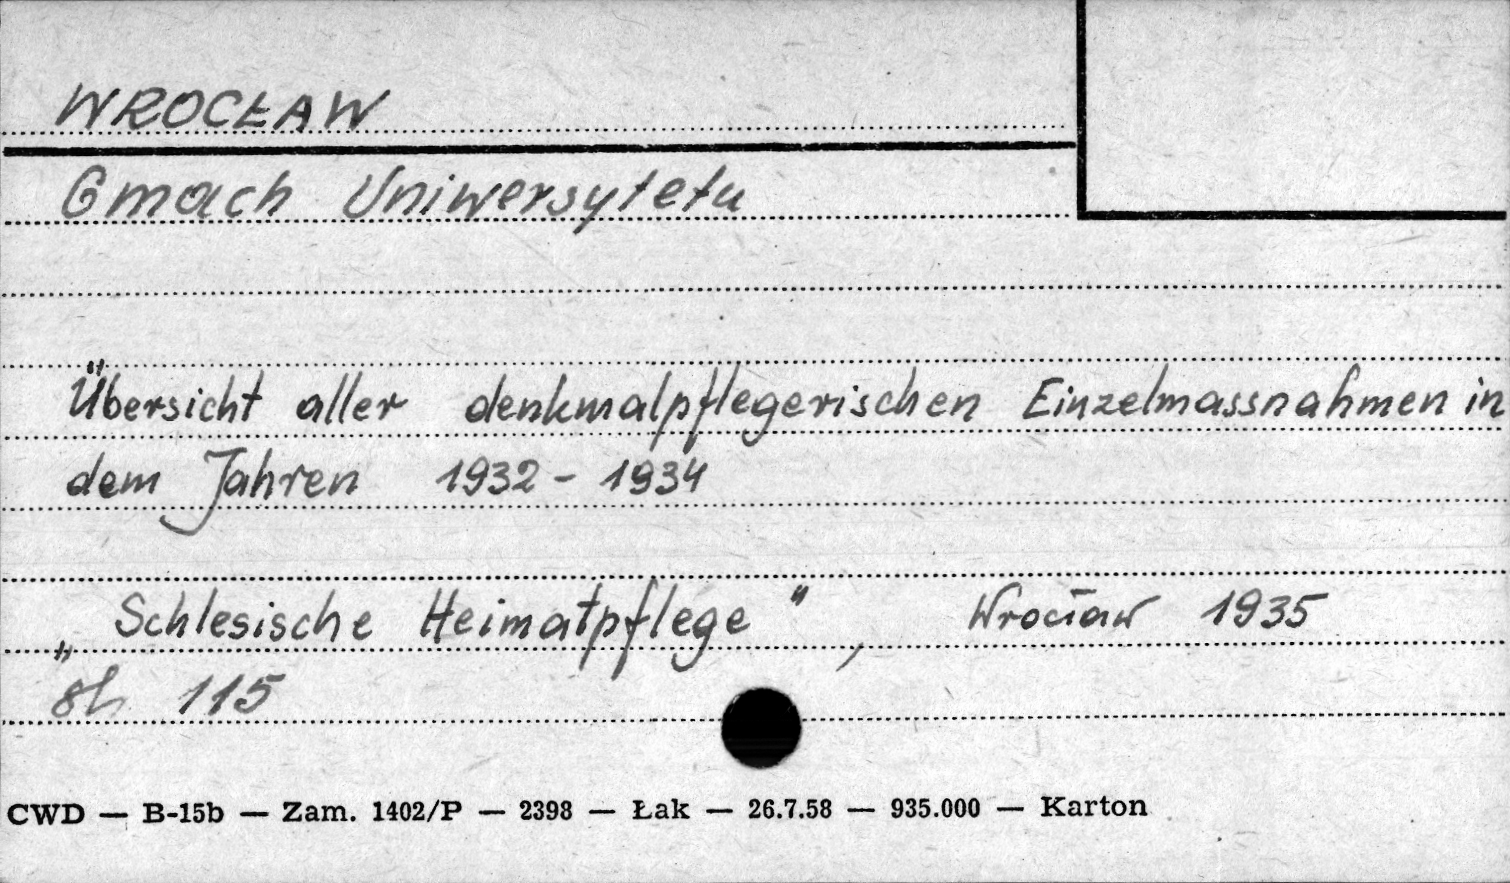 WROCŁAW
Gmach Uniwersytetu
Übersicht aller denkmalpflegerischen Einzelmassnahmen in
dem Jahren 1932 - 1934
„Schlesische Heimatpflege", Wrocław 1935
115
CWD — B-15b — Zam. 1402/P — 2398 — Łak — 26.7.58 — 935.000 — Karton